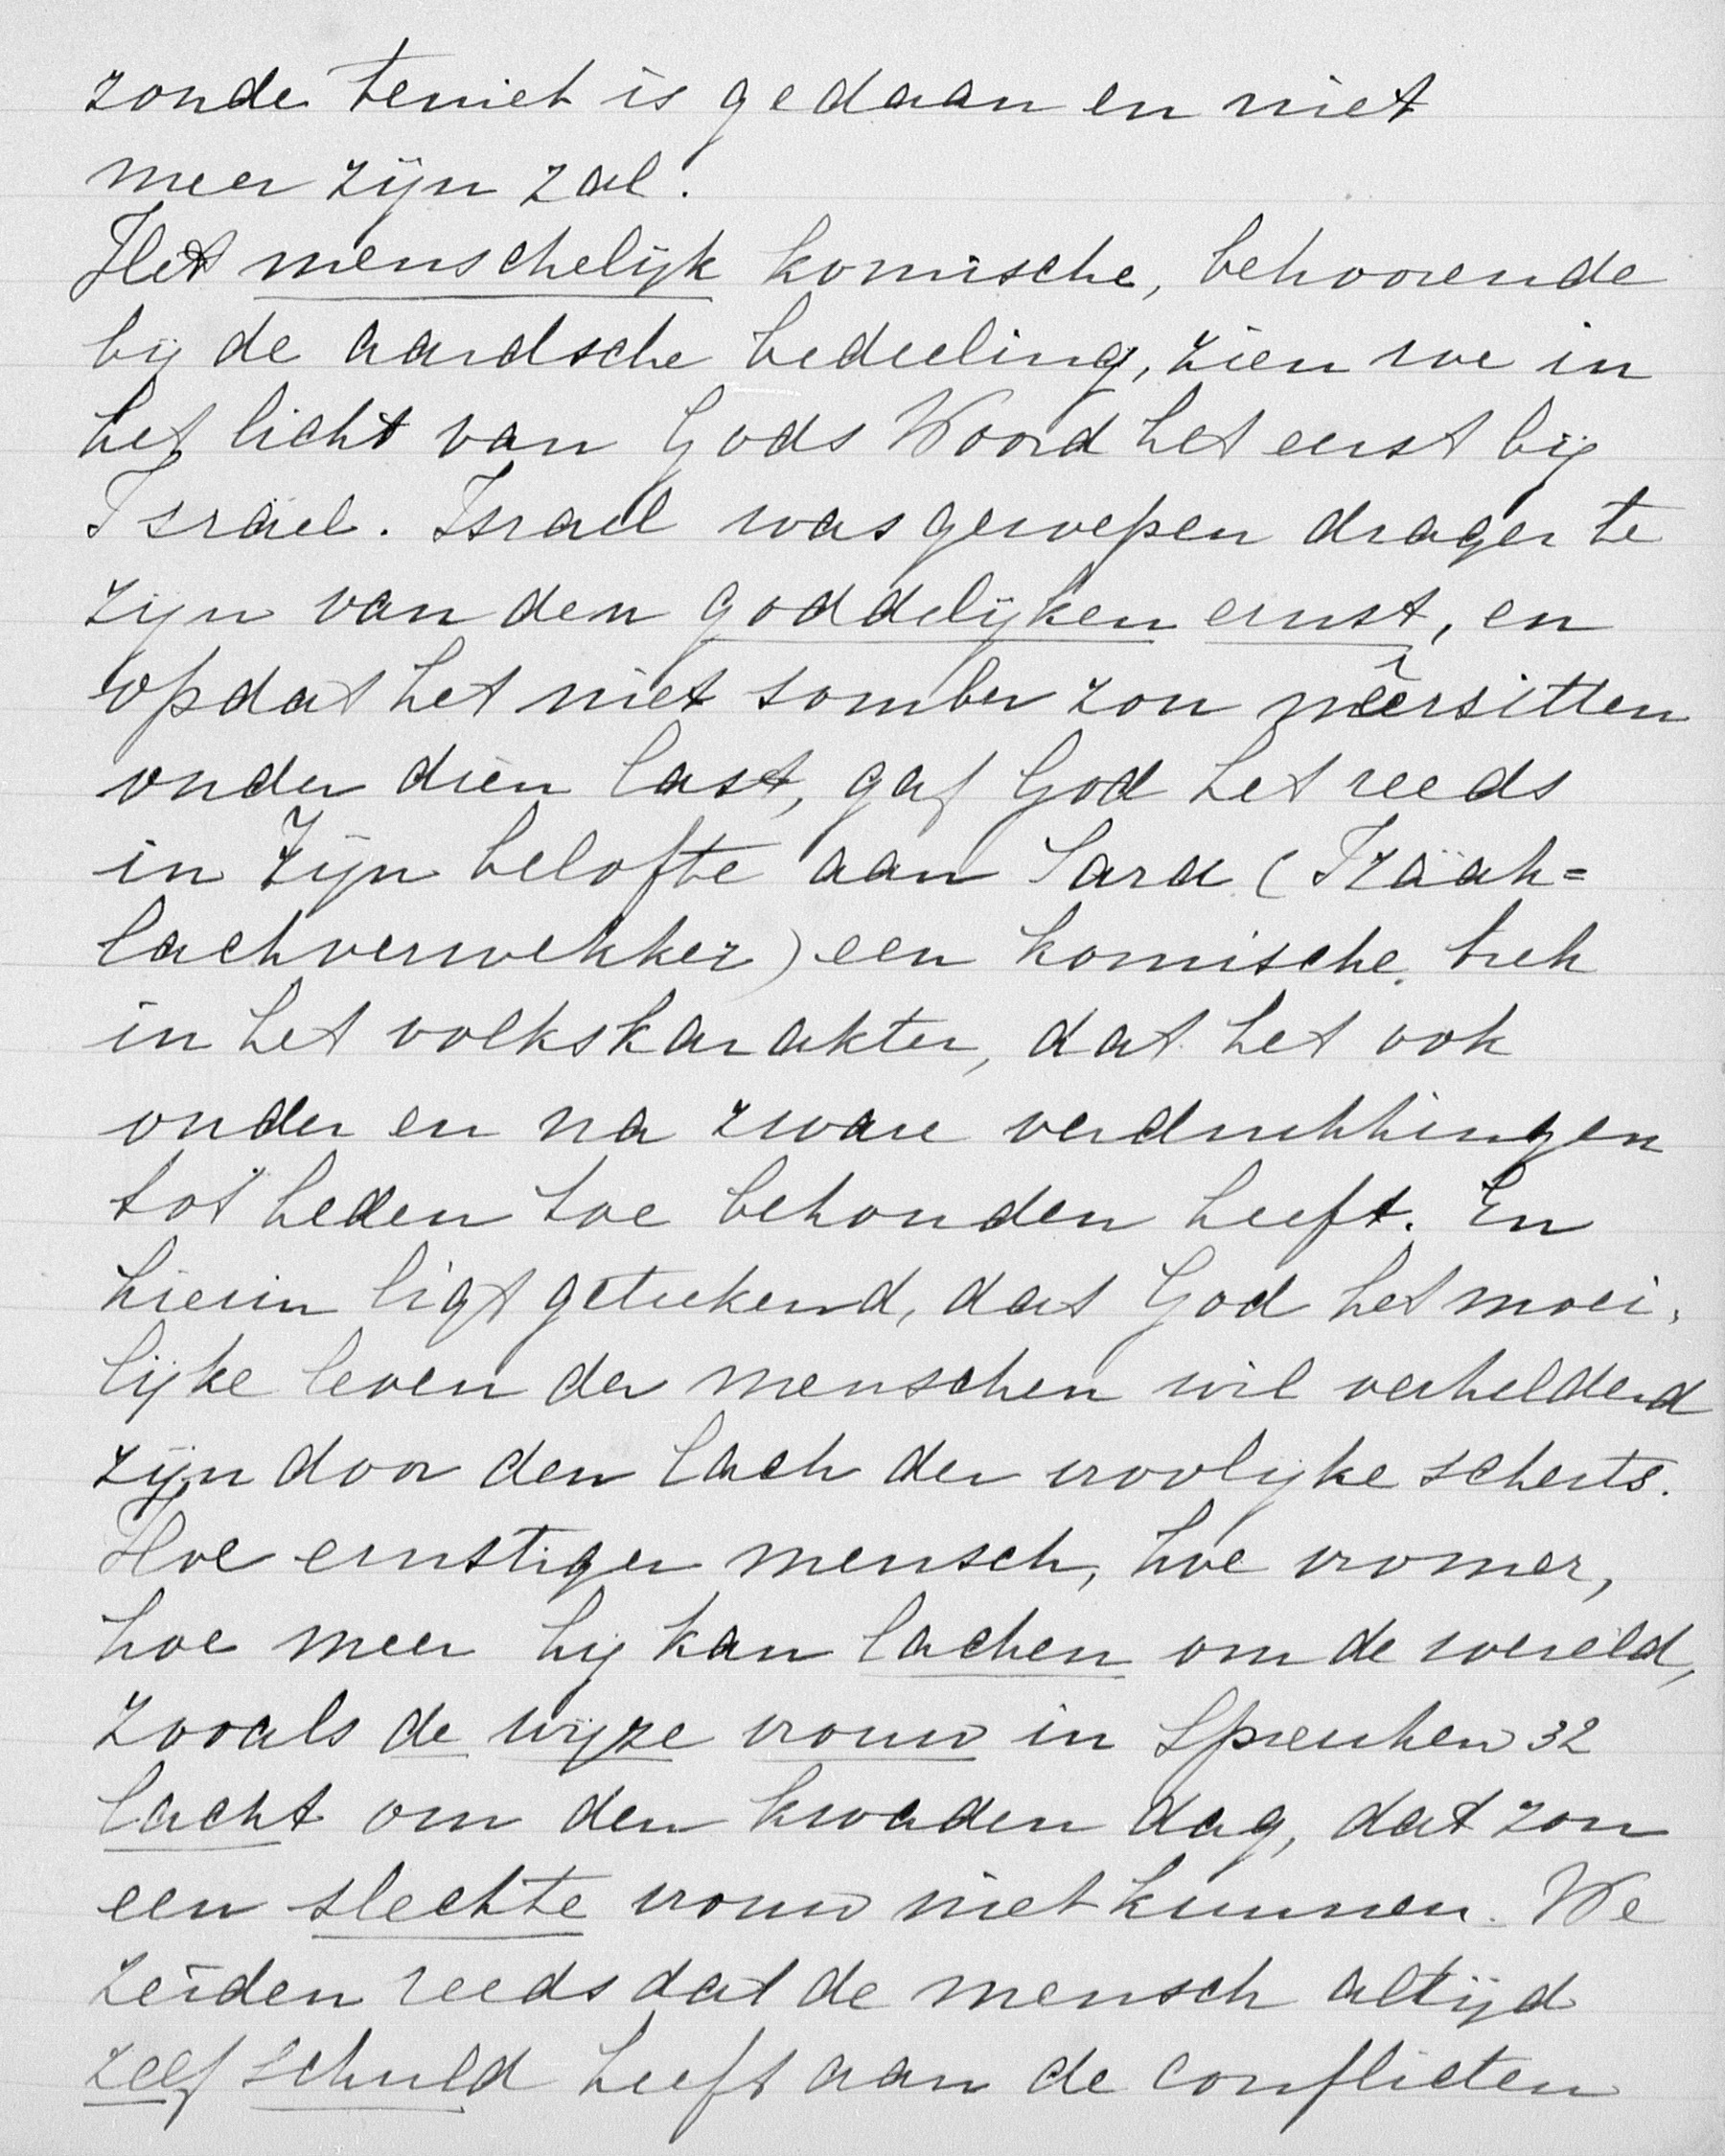 zonde teniet is gedaan en niet
meer zijn zal.
Het menschelijk komische, behoorende
bij de aardsche bedeeling, zien we in
het licht van Gods Woord het eerst bij
Israël. Israel was geroepen drager te
zijn van den goddelijken ernst, en
opdat het niet somber zou neêrsitten
onder dien last, gaf God het reeds
in Zijn belofte aan Sara (Izaäk=
lachverwekker) een komische trek
in het volkskarakter, dat het ook
onder en na zware verdrukkingen
tot heden toe behouden heeft. En
hierin ligt getekend, dat God het moei-
lijke leven der menschen wil verhelderd
zijn door den lach der vroolijke scherts.
Hoe ernstiger mensch, hoe vromer,
hoe meer hij kan lachen om de wereld,
zooals de wijze vrouw in Spreuken 32
lacht om den kwaden dag, dat zou
een slechte vrouw niet kunnen. We
zeiden reeds dat de mensch altijd
zelf schuld heeft aan de conflicten